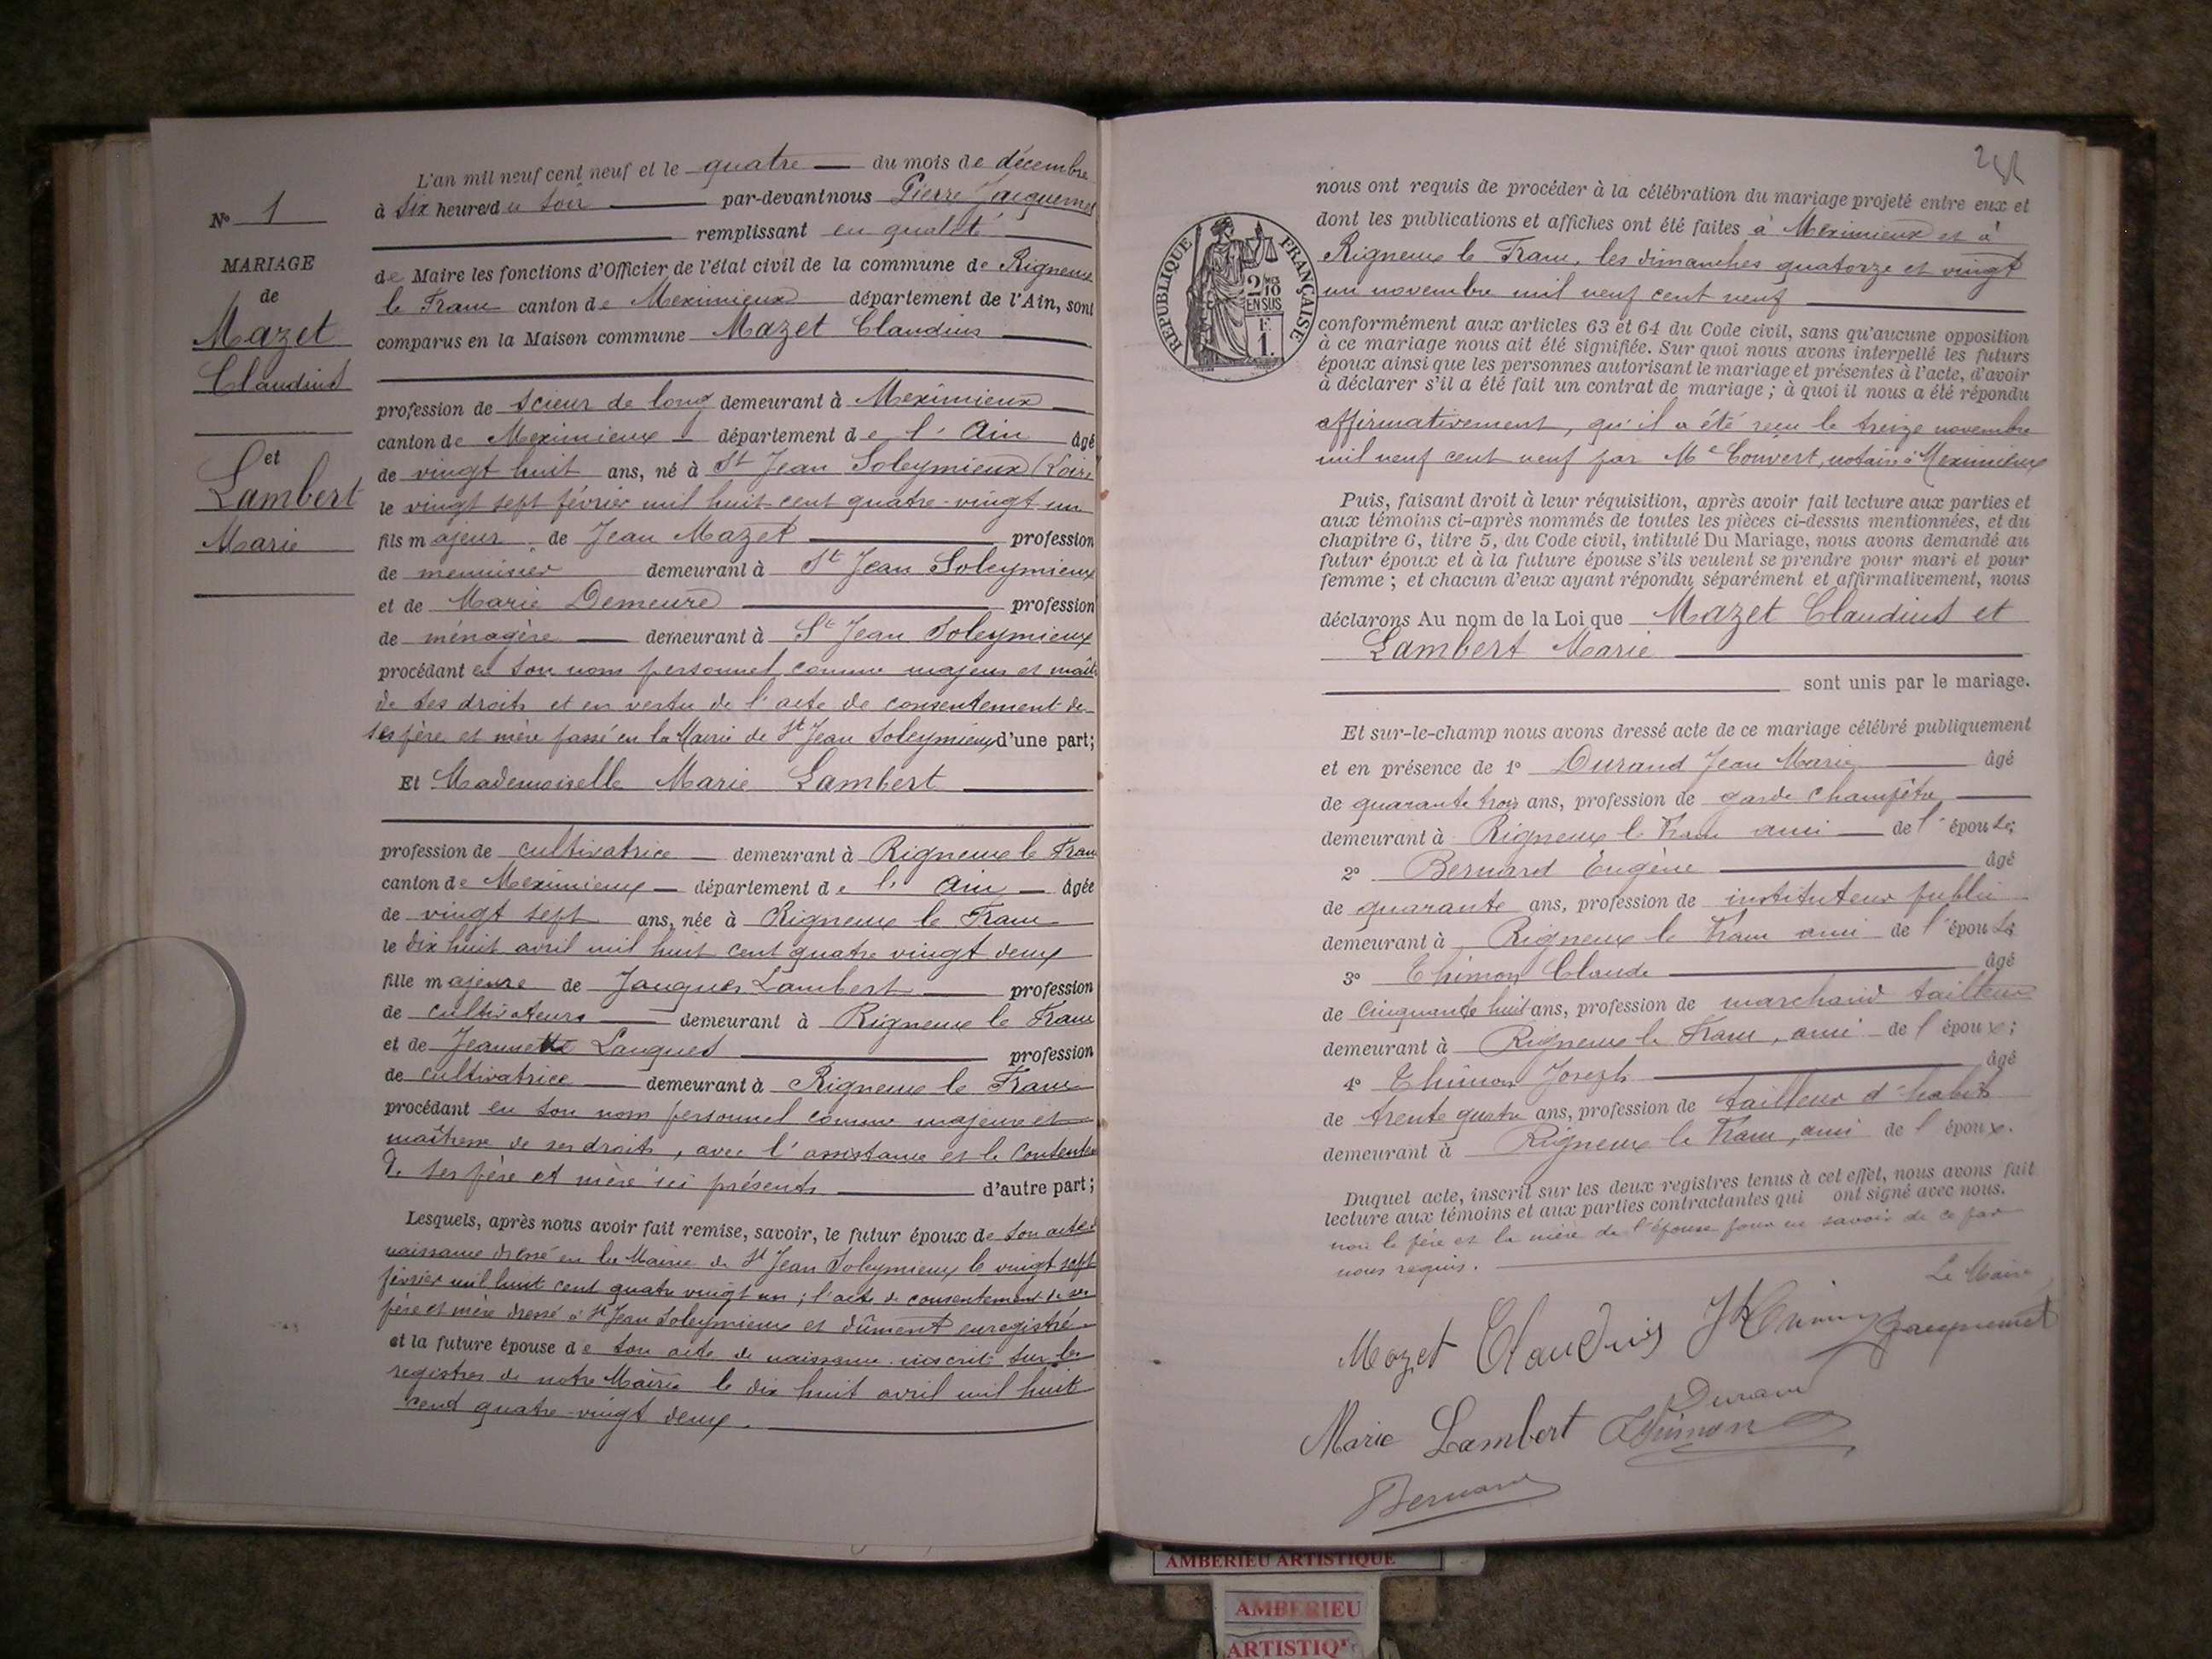 N° 1
MARIAGE
de
Mazet
Claudius
et
Lambert
Marie
L'an mil neuf cent neuf et le quatre du mois de décembre
à six heures du soir par-devant nous Pierre Jacquemet
remplissant en qualité
de Maire les fonctions d'Officier de l'état civil de la commune de Rigneux
le Franc canton de Meximieux département de l'Ain, sont
comparus en la Maison commune Mazet Claudius
profession de scieur de long demeurant à Meximieux
canton de Meximieux département de l'Ain âgé
de vingt huit ans, né à St Jean Soleymieux (Loire)
le vingt sept février mil huit cent quatre-vingt un
fils majeur de Jean Mazet profession
de menuisier demeurant à St Jean Soleymieux
et de Marie Demeure profession
de ménagère demeurant à St Jean Soleymieux
procédant en son nom personnel comme majeur et maître
de ses droits et en vertu de l'acte de consentement de
ses père et mère passé en la Mairie de St Jean Soleymieux d'une part;
Et Mademoiselle Marie Lambert
profession de cultivatrice demeurant à Rigneux le Franc
canton de Meximieux département de l'Ain âgée
de vingt sept ans, née à Rigneux le Franc
le dix huit avril mil huit cent quatre vingt deux
fille majeure de Jacques Lambert profession
de cultivateurs demeurant à Rigneux le Franc
et de Jeannette Langues profession
de cultivatrice demeurant à Rigneux le Franc
procédant en son nom personnel comme majeure et
maîtresse de ses droits, avec l'assistance et le consentem
de ses père et mère ici présents d'autre part;
Lesquels, après nous avoir fait remise, savoir, le futur époux de son acte
naissance dressé en la Mairie de St Jean Soleymieux le vingt sept
février mil huit cent quatre vingt un; l'acte de consentement de ses
père et mère dressé à St Jean Soleymieux et dûment enregistré
et la future épouse de son acte de naissance inscrit sur les
registres de notre Mairie le dix huit avril mil huit
cent quatre-vingt deux.
RÉPUBLIQUE FRANÇAISE
2/10 EN SUS
F. 1.
nous ont requis de procéder à la célébration du mariage projeté entre eux et
dont les publications et affiches ont été faites à Meximieux et à
Rigneux le Franc, les dimanches quatorze et vingt
un novembre mil neuf cent neuf
conformément aux articles 63 et 64 du Code civil, sans qu'aucune opposition
à ce mariage nous ait été signifiée. Sur quoi nous avons interpellé les futurs
époux ainsi que les personnes autorisant le mariage et présentes à l'acte, d'avoir
à déclarer s'il a été fait un contrat de mariage; à quoi il nous a été répondu
affirmativement, qu'il a été reçu le treize novembre
mil neuf cent neuf par Me Convert, notaire à Meximieux
Puis, faisant droit à leur réquisition, après avoir fait lecture aux parties et
aux témoins ci-après nommés de toutes les pièces ci-dessus mentionnées, et du
chapitre 6, titre 5, du Code civil, intitulé Du Mariage, nous avons demandé au
futur époux et à la future épouse s'ils veulent se prendre pour mari et pour
femme; et chacun d'eux ayant répondu séparément et affirmativement, nous
déclarons Au nom de la Loi que Mazet Claudius et
Lambert Marie
sont unis par le mariage.
Et sur-le-champ nous avons dressé acte de ce mariage célébré publiquement
et en présence de 1° Durand Jean Marie âgé
de quarante trois ans, profession de garde champêtre
demeurant à Rigneux le Franc ami de l'épouse;
2° Bernard Eugène âgé
de quarante ans, profession de instituteur public
demeurant à Rigneux le Franc ami de l'épouse
3° Thimon Claude âgé
de cinquante huit ans, profession de marchand tailleur
demeurant à Rigneux le Franc, ami de l'époux;
4° Thimon Joseph âgé
de trente quatre ans, profession de tailleur d'habits
demeurant à Rigneux le Franc, ami de l'époux.
Duquel acte, inscrit sur les deux registres tenus à cet effet, nous avons fait
lecture aux témoins et aux parties contractantes qui ont signé avec nous.
non le père et la mère de l'épouse pour ne savoir de ce par
nous requis.
Le Maire
Mazet Claudius J Thimon Jacquemet
Durand
Marie Lambert Thimon
Bernard
AMBERIEU ARTISTIQUE
AMBERIEU
ARTISTIQ